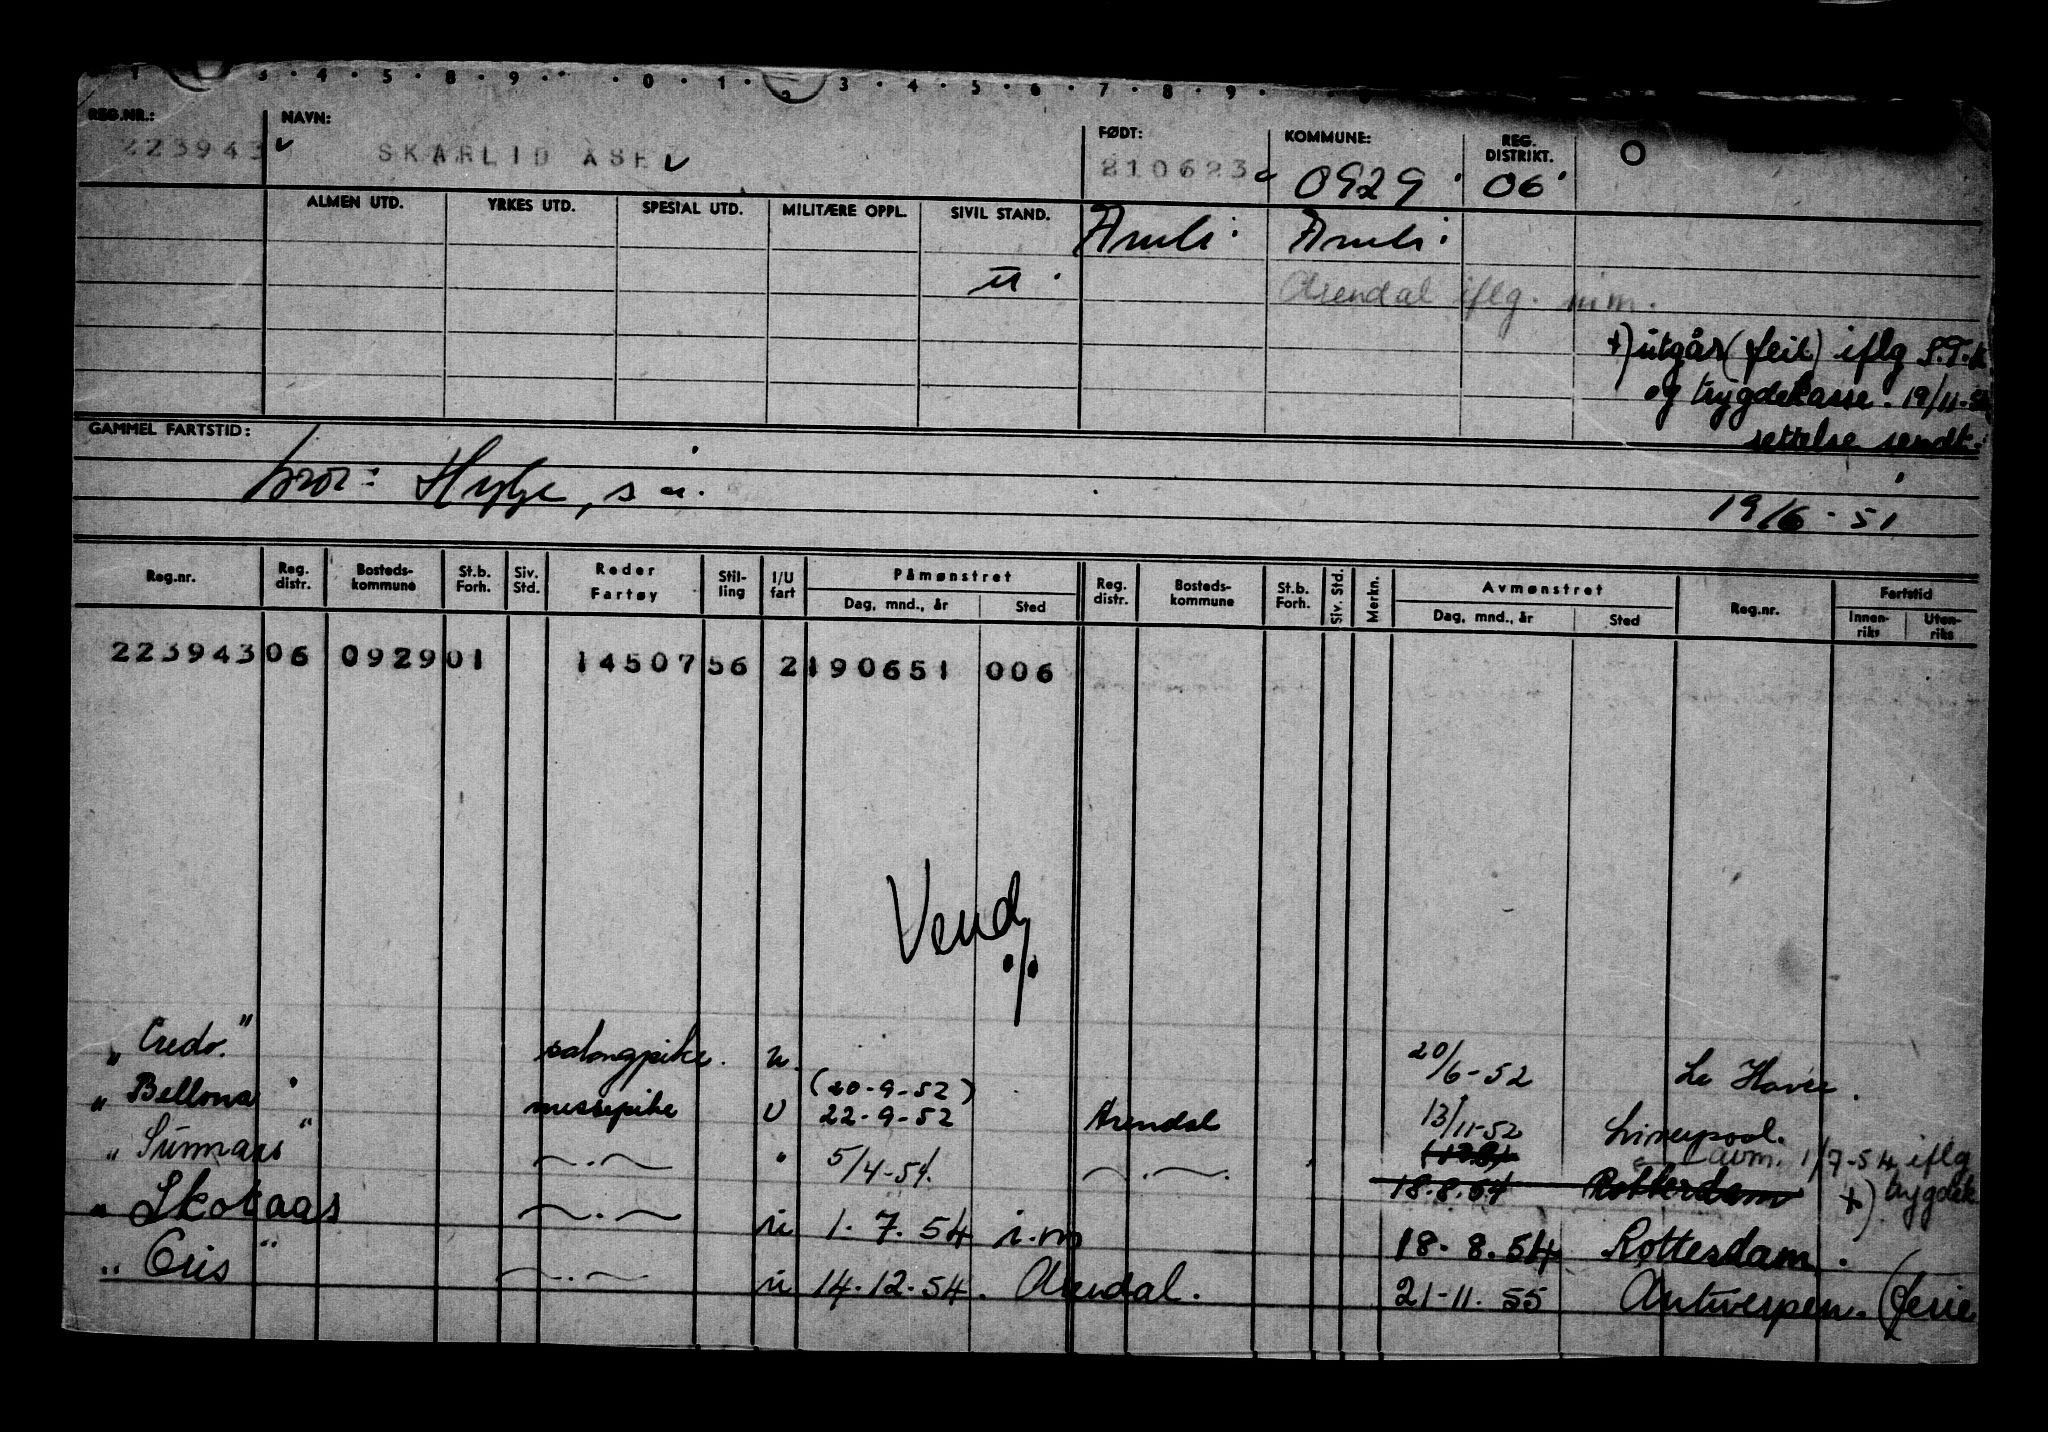 1 3 · 4 · 5 · 8 · 9 · 0 · 1 · 2 3 · 4 · 5 · 6 · 7 · 8 · 9 ·
REG.NR.: NAVN: FØDT: KOMMUNE: REG. DISTRIKT.
223943 SKARLID ASE 210623 0929 06 O
ALMEN UTD. YRKES UTD. SPESIAL UTD. MILITÆRE OPPL. SIVIL STAND. Åmli Åmli
u Arendal iflg. m.m.
+) utgår (feil) iflg S.T.K
og trygdekasse. 19/11-
settelse sendt.
GAMMEL FARTSTID:
bror: s.å.
19/6-51
Reg.nr. Reg. distr. Bosteds-kommune St.b. Forh. Siv. Std. Reder Fartøy Stil-ling I/U fart Påmønstret Dag, mnd., år Sted Reg. distr. Bosteds-kommune St.b. Forh. Siv. Std. Merkn. Avmønstret Dag, mnd., år Sted Reg.nr. Fartstid Innen-riks Uten-riks
223943 06 0929 01 14507 56 2 190651 006
Vend ./.
"Credo." salongpike. u. 20/6-52 Le Havre.
"Bellona messepike U (20-9-52) 22-9-52 Arendal 13/11-52 Liverpool.
"Sunmass" —.— " 5/4-54. —.— 18.8.54 Rotterdam avm. 1/7-54 iflg trygdek +)
"Skotaas —.— u 1.7.54 i.m 18.8.54 Rotterdam.
"Eris" —.— u 14.12.54. Arendal. 21-11.55 Antwerpen. (ferie